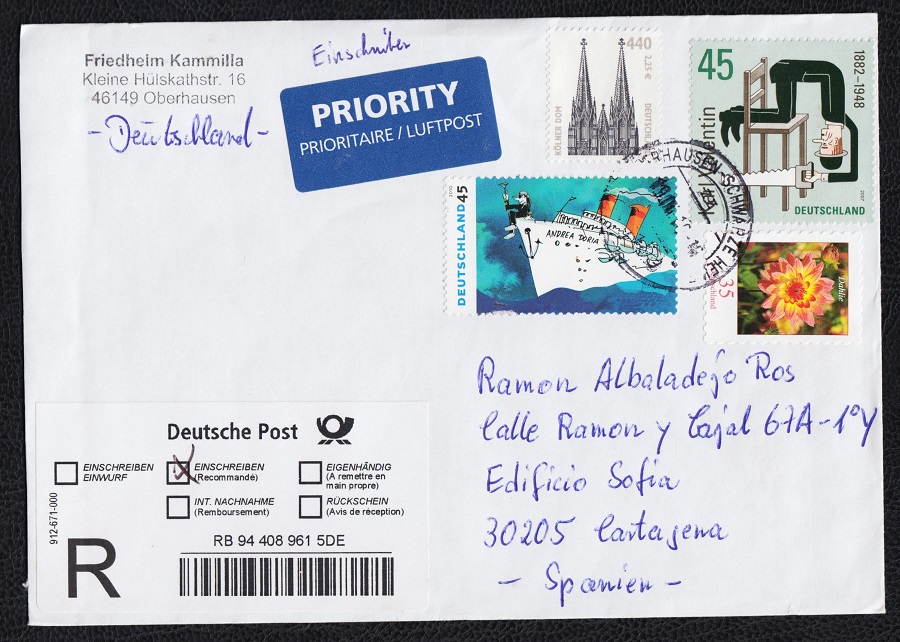 Friedhelm Kammilla
Kleine Hülskathstr. 16
46149 Oberhausen
-Deutschland-
Einschreiben
PRIORITY
PRIORITAIRE / LUFTPOST
440
2,25 €
KÖLNER DOM
DEUTSCHL
45
1882–1948
entin
2007
DEUTSCHLAND
ERHAUSEN SCHWARZE HE
DEUTSCHLAND 45
2010
ANDREA DORIA
35
Dahlie
schland
Ramon Albaladejo Ros
Calle Ramon y Cajal 67A-1ºY
Edificio Sofia
30205 Cartagena
- Spanien -
Deutsche Post
EINSCHREIBEN EINWURF
EINSCHREIBEN (Recommandé)
EIGENHÄNDIG (A remettre en main propre)
INT. NACHNAHME (Remboursement)
RÜCKSCHEIN (Avis de réception)
912-671-000
R
RB 94 408 961 5DE